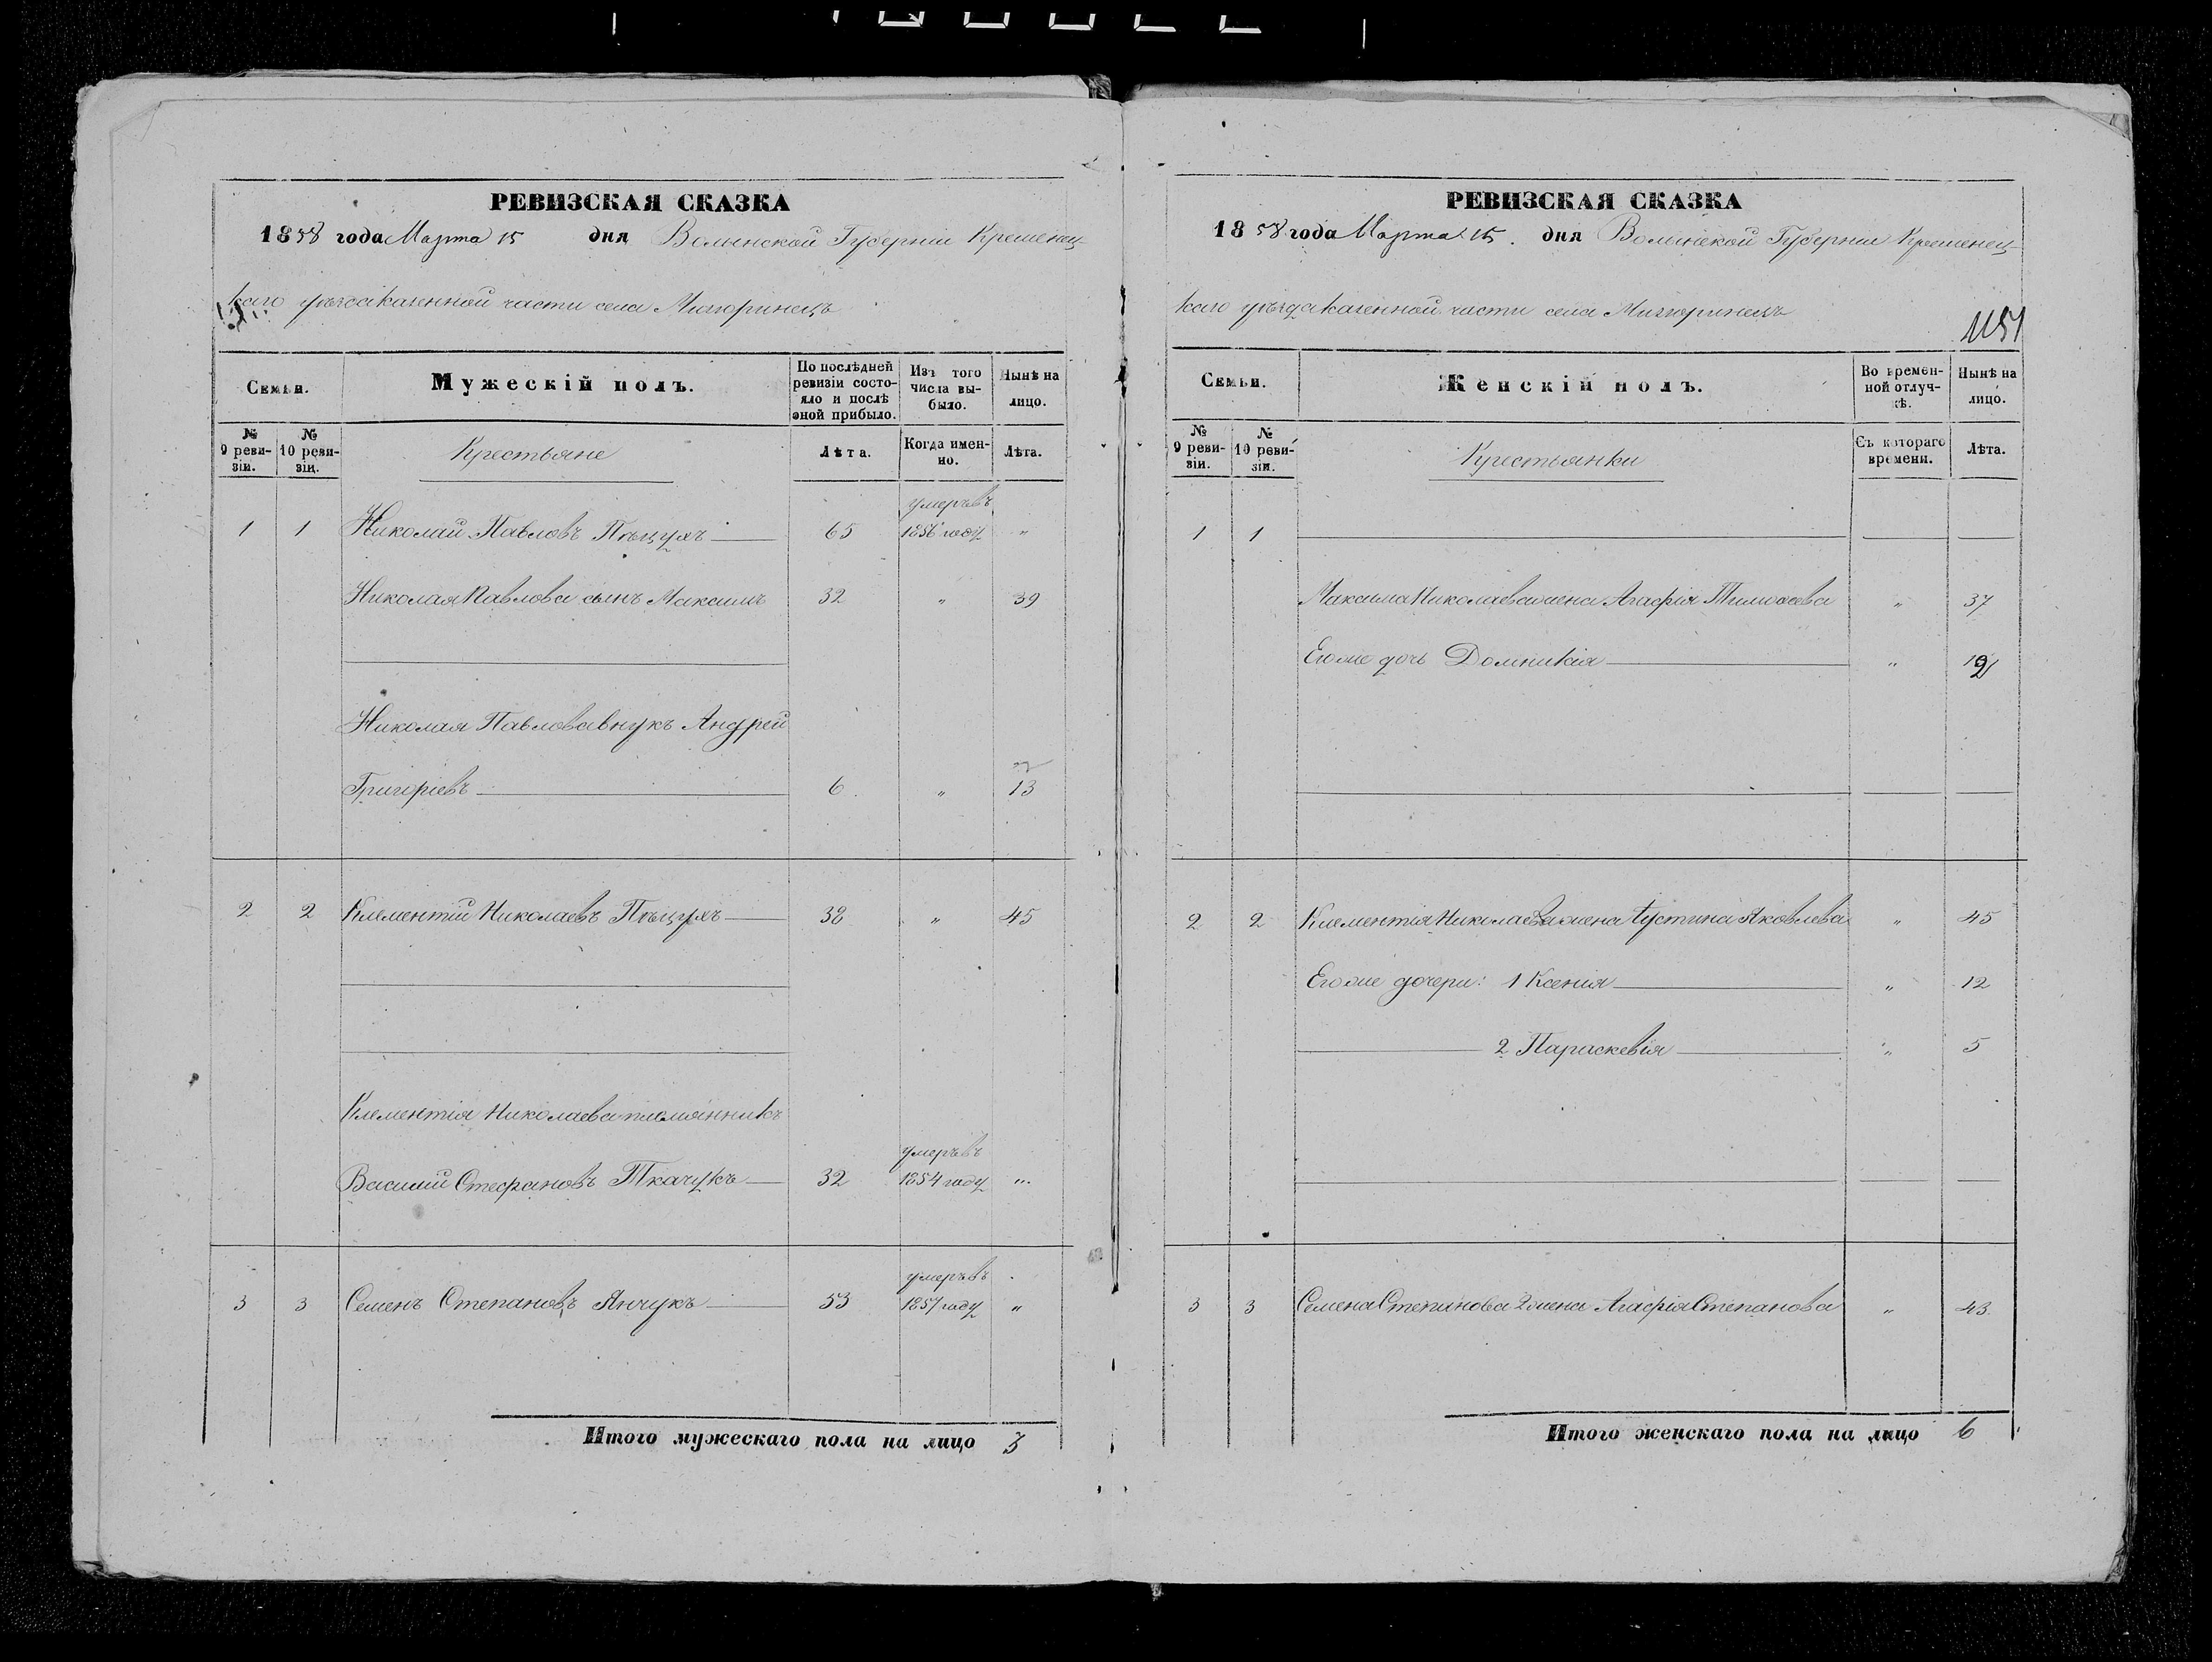 РЕВИЗСКАЯ СКАЗКА
1858 года Марта 15 дня Волынской Губерніи Кременец-
каго уѣзда казенной части села
Семьи.
Мужескій полъ.
По послѣдней ревизіи состо-яло и послѣ оной прибыло.
Изъ того числа вы-было.
Нынѣ на лицо.
№ 9 реви-зіи.
№ 10 реви-зіи.
Крестьяне
Лѣта.
Когда имен-но.
Лѣта.
умеръ въ
1 1 Николай Павловъ Пѣцухъ 65 1856 году "
Николая Павлова сынъ Максимъ 32 " 39
Николая Павлова внукъ Андрей
Григоріевъ 6 " 13
2 2 Климентій Николаевъ Пѣцухъ 38 " 45
Климентія Николаева племянникъ
умеръ въ
Василій Стефановъ Ткачукъ 32 1854 году "
умеръ въ
3 3 Семенъ Степановъ Янчукъ 53 1857 году "
Итого мужескаго пола на лицо 3
РЕВИЗСКАЯ СКАЗКА
1858 года Марта 15. дня Волынской Губерніи Кременец-
каго уѣзда казенной части села
1151
Семьи.
Женскій полъ.
Во времен-ной отлуч-кѣ.
Нынѣ на лицо.
№ 9 реви-зіи.
№ 10 реви-зіи.
Крестьянки
Съ котораго времени.
Лѣта.
1 1
Максима Николаева жена Агафія Тимофеева " 37
Его же дочь Домникія "
2 2 Климентія Николаева жена Іустина Яковлева " 45
Его же дочери: 1 Ксенія " 12
2 Параскевія " 5
3 3 Семена Степанова 2 жена Агафія Степанова " 43
Итого женскаго пола на лицо 6